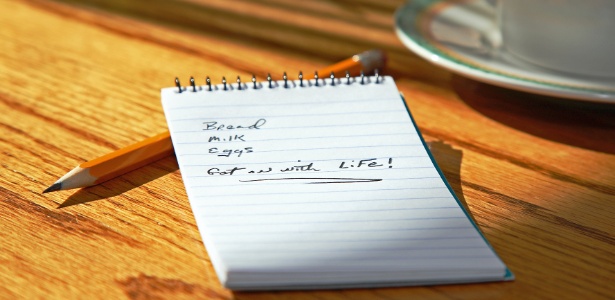 Bread
milk
eggs
Get on with LiFe!